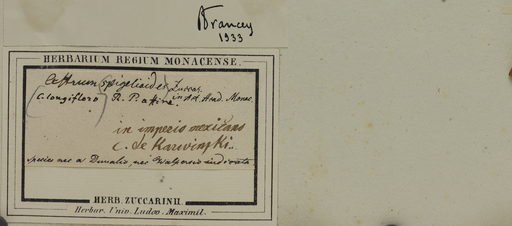 Francey
1933
HERBARIUM REGIUM MONACENSE.
Cestrum spigelioides Zuccar.
(C. longifloro) R. P. affine. in Act. Acad. Monac.
in imperio mexicano
C. de Karwinski.
species nec a Dunalio, nec Walpersio indicata
HERB. ZUCCARINII.
Herbar. Univ. Ludov. Maximil.